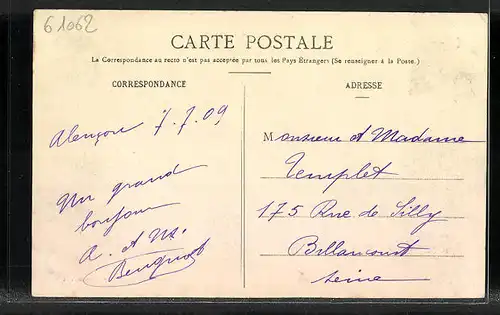 61062
CARTE POSTALE
La Correspondance au recto n'est pas acceptée par tous les Pays Étrangers (Se renseigner à la Poste.)
CORRESPONDANCE
Alençon 7.7.09
Un grand
bonjour
A. et M.
ADRESSE
Monsieur et Madame
Templet
175 Rue de Silly
Billancourt
Seine